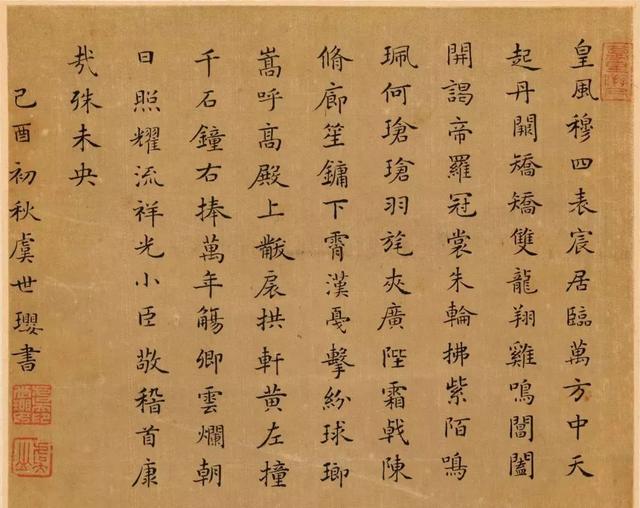 皇風穆四表宸居臨萬方中天
起丹闕矯矯雙龍翔雞鳴閶闔
開謁帝羅冠裳朱輪拂紫陌鳴
珮何瑲瑲羽旄夾廣陛霜戟陳
脩廊笙鏞下霄漢戛擊紛球瑯
嵩呼高殿上黻扆拱軒黃左撞
千石鐘右捧萬年觴卿雲爛朝
日照耀流祥光小臣敬稽首康
哉殊未央
己酉初秋虞世瓔書